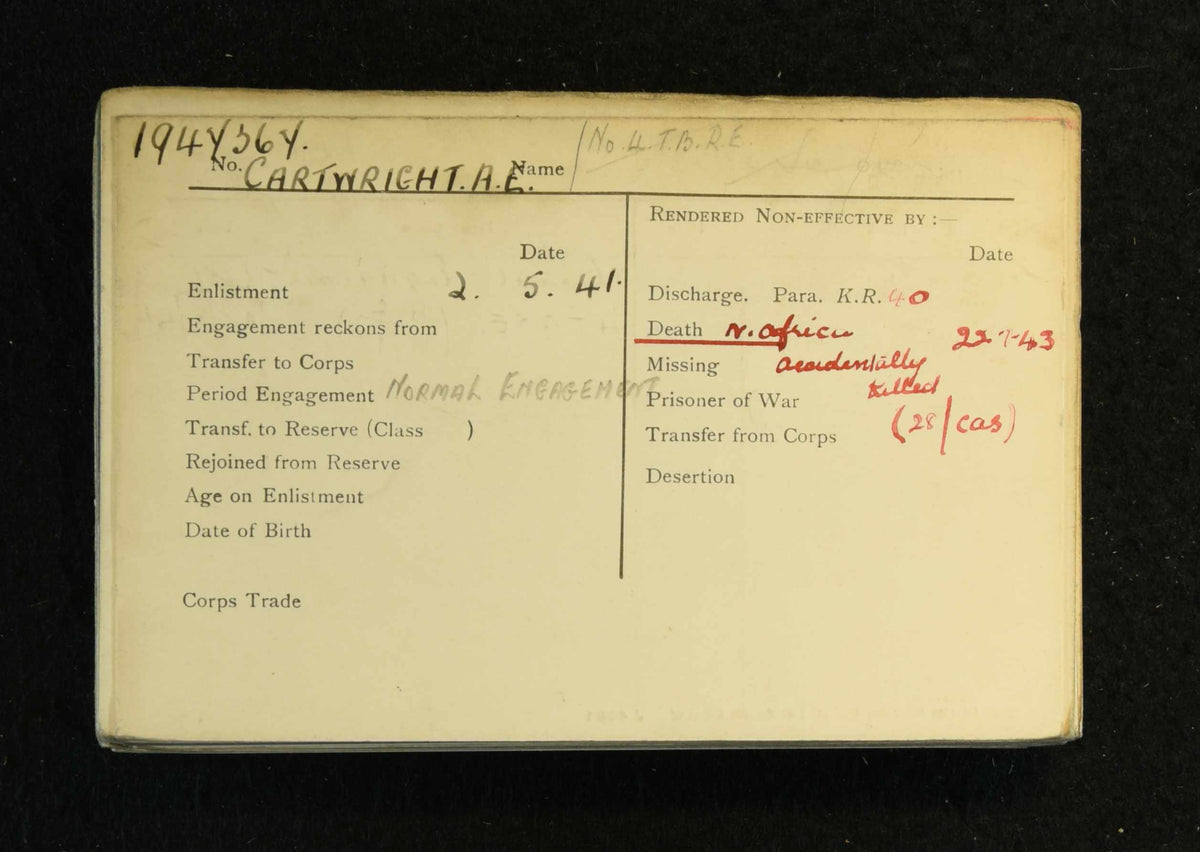 1947367.
No. CARTWRIGHT. A. E. Name No. 4. T.B.R.E.
RENDERED NON-EFFECTIVE BY :—
Date
Date
Enlistment 2. 5. 41.
Discharge. Para. K.R. 40
Engagement reckons from
Death N. Africa 22-7-43
Transfer to Corps
Missing accidentally
killed
Period Engagement NORMAL ENGAGEMENT
Prisoner of War
Transf. to Reserve (Class )
Transfer from Corps (28/cas)
Rejoined from Reserve
Desertion
Age on Enlistment
Date of Birth
Corps Trade